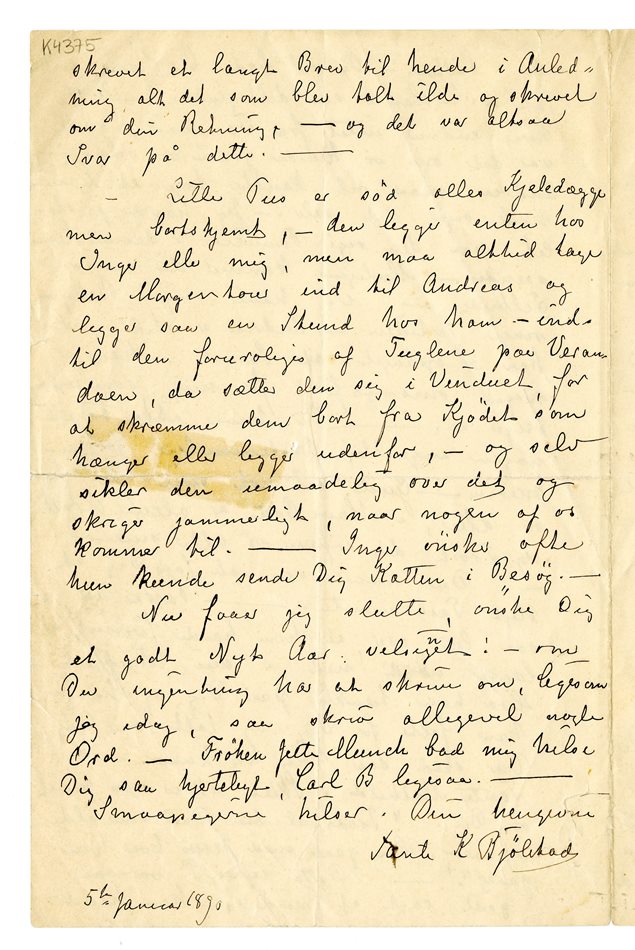 K4375
skrevet et langt Brev til hende i Anled=
ning alt det som blev talt ilde og skrevet
om din Retning, — og det var altsaa
Svar på dette. —
— Lille Pus er sød alles Kjeledægge
men bortskjemt, – den legger enten hos
Inger elle mig, men maa altid tage
en Morgentour ind til Andreas og
legger saa en Stund hos ham – ind=
til den foruroliges af Fuglene paa Veran=
daen, da sætter den sig i Vinduet, for
at skræmme dem bort fra Kjödet som
hænger eller legger udenfor, – og selv
sikler den umaadelig over det og
skriger jammerligt, naar nogen af os
kommer til. — Inger önsker ofte
hun kunde sende Dig Katten i Besøg. —
Nu faar jeg slutte, önske Dig
et godt Nyt Aar. velsignet! – om
Du ingenting har at skrive om, legesom
jeg idag, saa skriv allegevel nogle
Ord. — Fröken Jette Munch bad mig hilse
Dig saa hjerteligt, Carl B legesaa. —
Smaapigerne hilser. Din hengivne
Tante K Bjölstad
5te Januar 1890